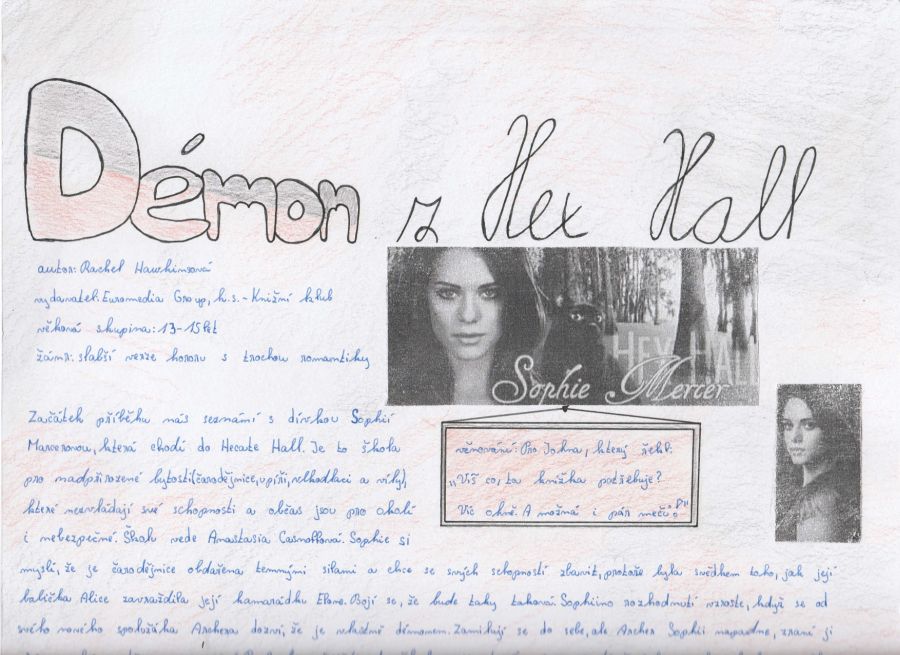 Démon z Hex Hall
autor: Rachel Hawkinsová
vydavatel: Euromedia Group, k.s. - Knižní klub
věková skupina: 13-15 let
žánr: slabší verze hororu s trochou romantiky
HEX HAL
Sophie Mercer
věnování: Pro Johna, který řekl:
„Víš co, ta knížka potřebuje?
Víc ohně. A možná i pár mečů."
Začátek příběhu nás seznámí s dívkou Sophií
Mercerovou, která chodí do Hecate Hall. Je to škola
pro nadpřirozené bytosti (čarodějnice, upíři, vlkodlaci a víly),
které nezvládají své schopnosti a občas jsou pro okolí
i nebezpečné. Školu vede Anastasia Casnoffová. Sophie si
myslí, že je čarodějnice obdařena temnými silami a chce se svých schopností zbavit, protože byla svědkem toho, jak její
babička Alice zavraždila její kamarádku Elone. Bojí se, že bude taky taková. Sophiino rozhodnutí vzroste, když se od
svého nového spolužáka Archera dozví, že je vlastně démonem. Zamilují se do sebe, ale Archer Sophii napadne, zraní ji